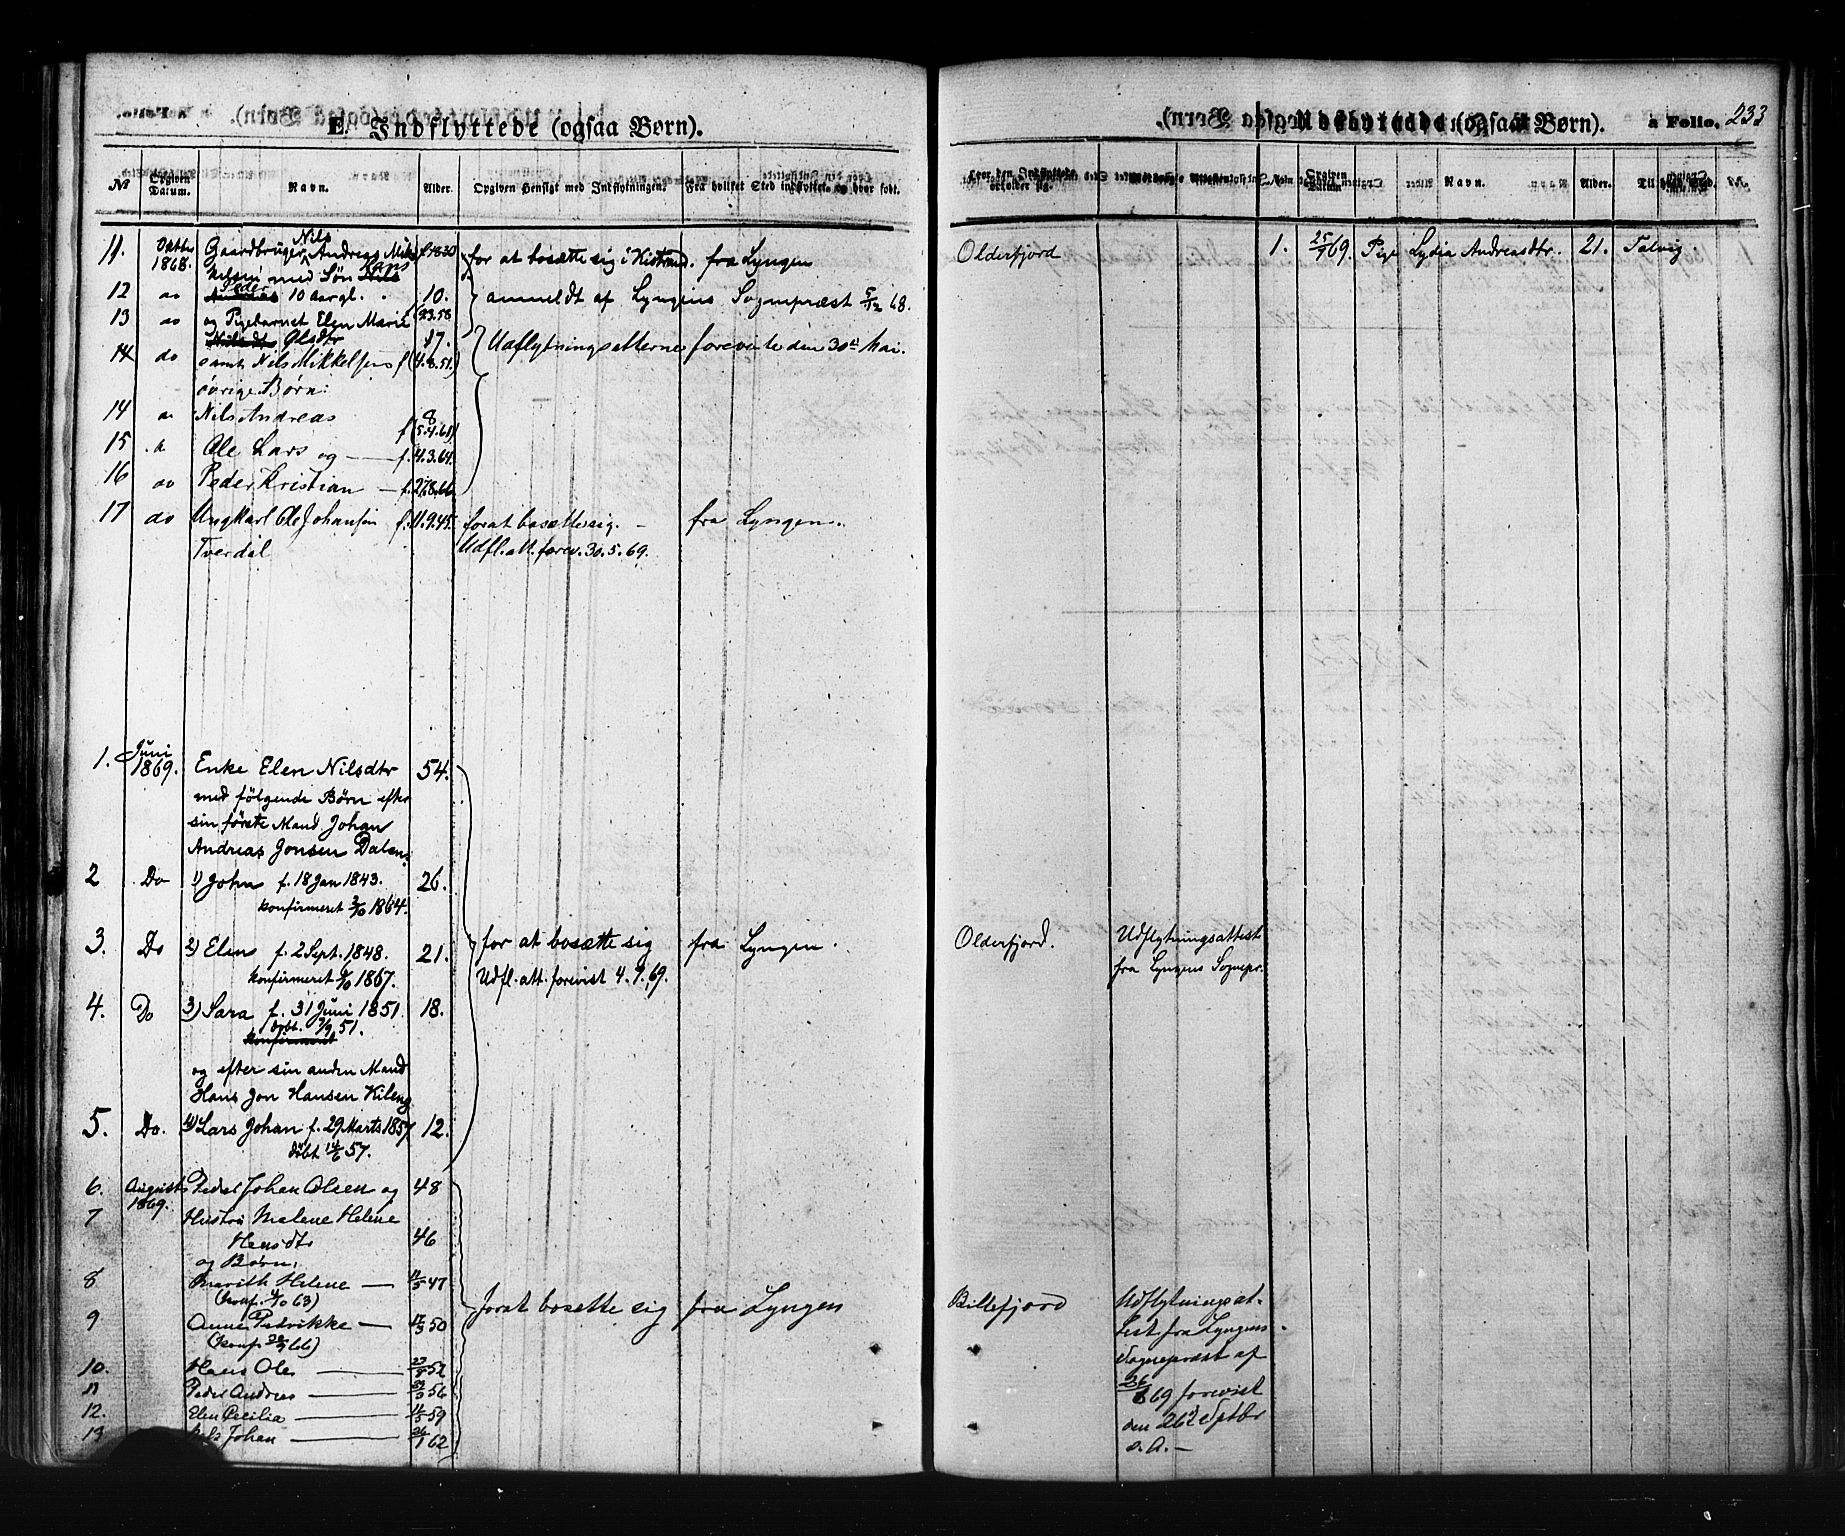 E. Indflyttede (ogsaa Børn).
№
Opgiven Datum.
Navn.
Alder.
Opgiven Hensigt med Indflytningen.
Fra hvilket Sted indflyttet, og hvor født.
11. Oktbr 1868. Gaardbruger Nils Andreas Mik- f. 1830 for at bosætte sig i Kistrand. fra Lyngen
kelsen med Søn Hans
12 do Peder 10 aargl. 10. anmeldt af Lyngens Sognepræst 5/12 68.
13 do og Pigebarnet Elen Marie 23.58
Nilsdtr Olsdtr 17. Udflytningsatterne foreviste den 30te Mai.
14 do samt Nils Mikkelsens f (4.8.51)
øvrige Børn:
14 do Nils Andreas 8
f (5.4.61)
15 do Ole Lars og — f. 4.3.64.
16 do Peder Kristian — f. 27.8.66.
17 do Ungkarl Ole Johansen f. 11.9.45. forat bosætte sig. — fra Lyngen.
Tverdal Udfl.att. forev. 30.5.69.
1. Juni 1869. Enke Elen Nilsdtr 54.
med følgende Børn efter
sin første Mand Johan
Andreas Jonsen Dalen:
2 Do 1) John f. 18 Jan 1843. 26.
konfirmeret 2/10 1864.
3. Do 2) Elen f. 2 Sept. 1848. 21. for at bosætte sig fra Lyngen.
konfirmeret 1867. Udfl. att. forevist 4.9.69.
4. Do 3) Sara f. 31 Juni 1851. 18.
døbt 7/9 51.
konfirmeret
og efter sin anden Mand
Hans Jon Hansen Kileng
5. Do. 4) Lars Johan f. 29 Marts 1857 12.
døbt 14/6 57.
6. August 1869. Peder Johan Olsen og 48
7 Hustru Malene Helene
Hansdtr 46
og Børn:
8 Marith Helene — 11/5 47
(konf. 4/10 63) forat bosette sig fra Lyngen
9 Anne Pedrikke — 17/3 50
(konf. 66)
10. Hans Ole — 52
11 Peder Andreas — 56
12. Elen Cecilia — 11/5 59
13 Nils Johan — 26/1 62
Udflyttede (ogsaa Børn).
a Folio. 233
Navn.
Alder.
Olderfjord 1. 25/7 69. Pige Lydia Andreasdtr. 21. Talvig
Olderfjord. Udflytningsattest
fra Lyngens Sognepr.
Billefjord Udflytningsat-
test fra Lyngens
Sognepræst af
26/8 69 forevist
den 26d Septbr
s. A. —